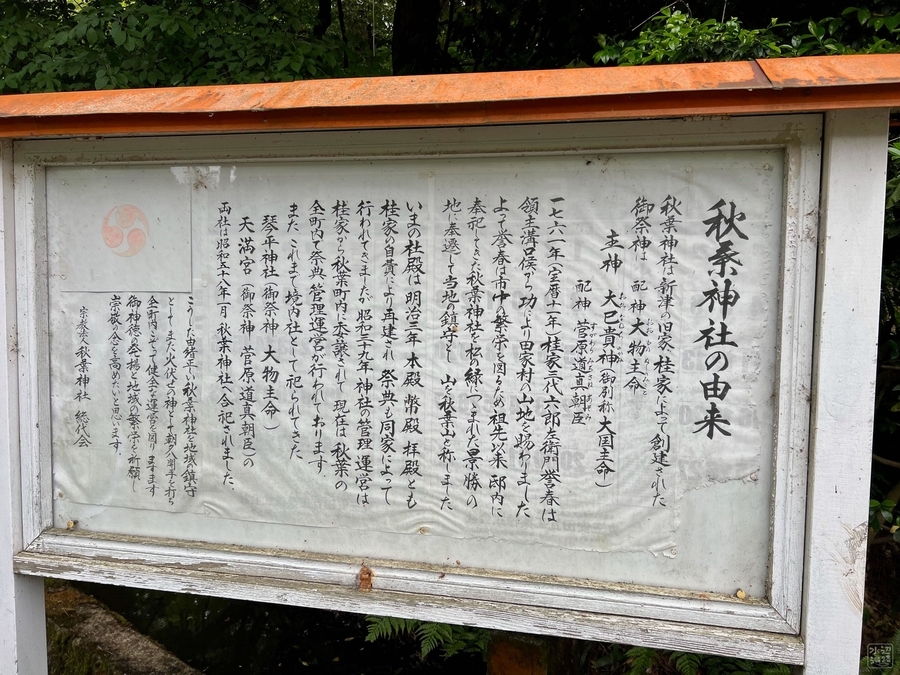 秋葉神社の由来
秋葉神社は新津の旧家 桂家によって創建された
御祭神は 配神 大物主命
主神 大巳貴神(御別称 大国主命)
配神 菅原道真朝臣
一七六一年(宝暦十一年)桂家三代六郎左衛門誉春は
領主溝口侯から功により田家村の山地を賜わりました
よって誉春は市中の繁栄を図るため 祖先以来 邸内に
奉祀してきた秋葉神社を松の緑につつまれた景勝の
地に奉遷して当地の鎮守とし 山を秋葉山と称しました
いまの社殿は 明治三年 本殿 幣殿 拝殿とも
桂家の自費により再建され 祭典も同家によって
行われてきましたが 昭和三十九年 神社の管理 運営は
桂家から秋葉町内に委譲されて 現在は 秋葉の
全町内で祭典 管理運営が行われております
また これまで境内社として祀られてきた
琴平神社(御祭神 大物主命)
天満宮(御祭神 菅原道真朝臣)の
両社は昭和五十八年一月 秋葉神社へ合祀されました。
こうした由緒深い秋葉神社を地域の鎮守
として また火伏せの神として朝夕八割手を打ち
全町内こぞって健全な運営を図りますます
御神徳の発揚と地域の繁栄を祈願し
崇敬の念を高めたいと思います。
秋葉神社 総代会